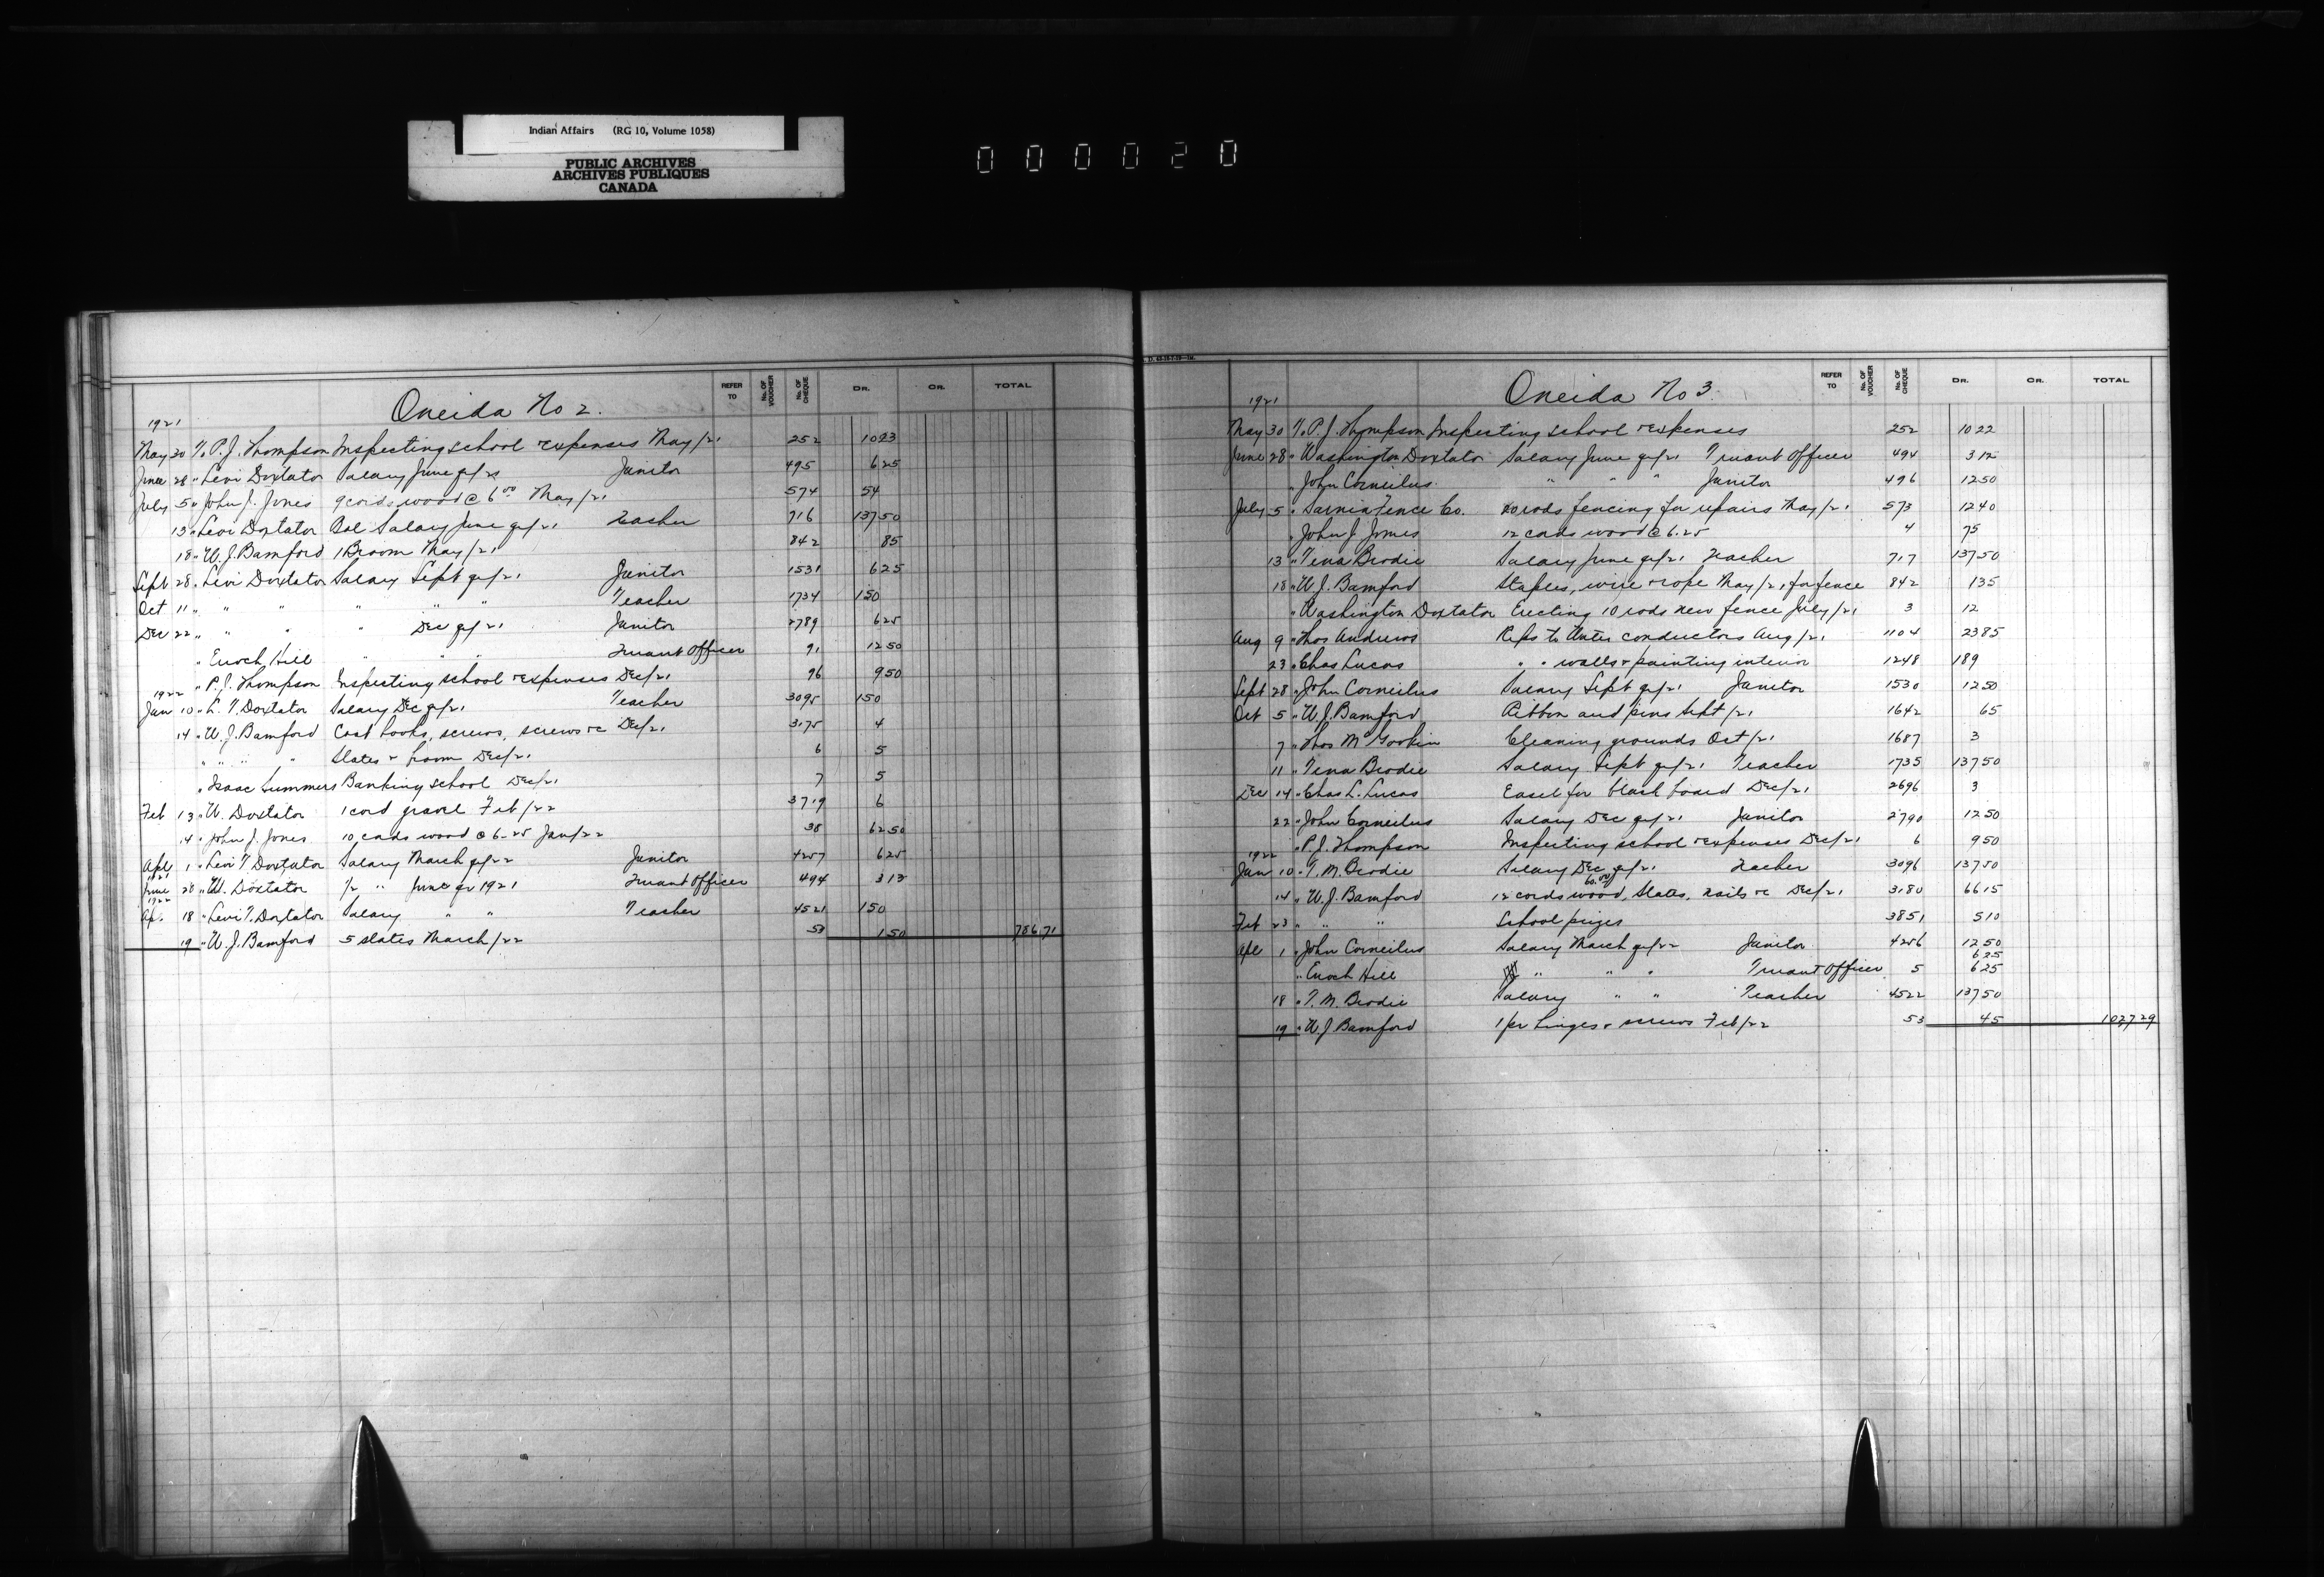 Indian Affairs (RG 10, Volume 1058)
PUBLIC ARCHIVES
ARCHIVES PUBLIQUES
CANADA
000020
Oneida No 2.
REFER TO No. OF VOUCHER No. OF CHEQUE DR. CR. TOTAL
1921
May 30 To P. J. Thompson Inspecting school & expenses May/21 252 10 23
June 28 " Levi Doxtator Salary June qr/21 Janitor 495 6 25
July 5 " John J. Jones 9 cords wood @ 6 00 May/21 574 54
13 " Levi Doxtator Bal Salary June qr/21 Teacher 716 137 50
18 " W. J. Bamford 1 Broom May/21 842 85
Sept 28 " Levi Doxtator Salary Sept qr/21 Janitor 1531 6 25
Oct 11 " " " " " " Teacher 1734 150
Dec 22 " " " " Dec qr/21 Janitor 2789 6 25
" Enoch Hill " " " Truant Officer 91 12 50
" P. J. Thompson Inspecting school & expenses Dec/21 96 9 50
1922
Jan 10 " L. T. Doxtator Salary Dec qr/21 Teacher 3095 150
14 " W. J. Bamford Coat hooks, screws, screws &c Dec/21 3175 4
" " " " Slates & broom Dec/21 6 5
" Isaac Summers Banking school Dec/21 7 5
Feb 13 " W. Doxtator 1 cord gravel Feb/22 3719 6
14 " John J. Jones 10 cords wood @ 6-25 Jan/22 38 62 50
Apl 1 " Levi T. Doxtator Salary March qr/22 Janitor 4257 6 25
1921
June 28 " W. Doxtator 1/2 " June qr 1921 Truant Officer 494 3 12
1922
Ap. 18 " Levi T. Doxtator Salary " " Teacher 4521 150
19 " W. J. Bamford 5 slates March/22 53 1 50 786 71
Oneida No 3.
REFER TO No. OF VOUCHER No. OF CHEQUE DR. CR. TOTAL
1921
May 30 To P. J. Thompson Inspecting school & expenses 252 10 22
June 28 " Washington Doxtator Salary June qr/21 Truant Officer 494 3 12
" John Corneilus " " " Janitor 496 12 50
July 5 " Sarnia Fence Co. 20 rods fencing for repairs May/21 573 12 40
" John J. Jones 12 cords wood @ 6.25 4 75
13 " Tena Brodie Salary June qr/21 Teacher 717 137 50
18 " W. J. Bamford Staples, wire & rope May/21 for fence 842 1 35
" Washington Doxtator Erecting 10 rods new fence July/21 3 12
Aug 9 " Thos Andrews Reps to Water conductors Aug/21 1104 23 85
23 " Chas Lucas " " walls & painting interior 1248 189
Sept 28 " John Corneilus Salary Sept qr/21 Janitor 1530 12 50
Oct 5 " W. J. Bamford Ribbon and pins Sept/21 1642 65
7 " Thos Cleaning grounds Oct/21 1687 3
11 " Tena Brodie Salary Sept qr/21 Teacher 1735 137 50
Dec 14 " Chas L. Lucas Easel for black board Dec/21 2696 3
22 " John Corneilus Salary Dec qr/21 Janitor 2790 12 50
" P. J. Thompson Inspecting school & expenses Dec/21 6 9 50
1922
Jan 10 " T. M. Brodie Salary Dec qr/21 Teacher 3096 137 50
60.00
14 " W. J. Bamford 12 cords wood, slates, nails &c Dec/21 3180 66 15
Feb 23 " " " School prizes 3851 5 10
Apl 1 " John Corneilus Salary March qr/22 Janitor 4256 12 50
6 25
" Enoch Hill " " " Truant Officer 5 6 25
18 " T. M. Brodie Salary " " Teacher 4522 137 50
19 " W. J. Bamford 1 pr hinges & screws Feb/22 53 45 1027 29